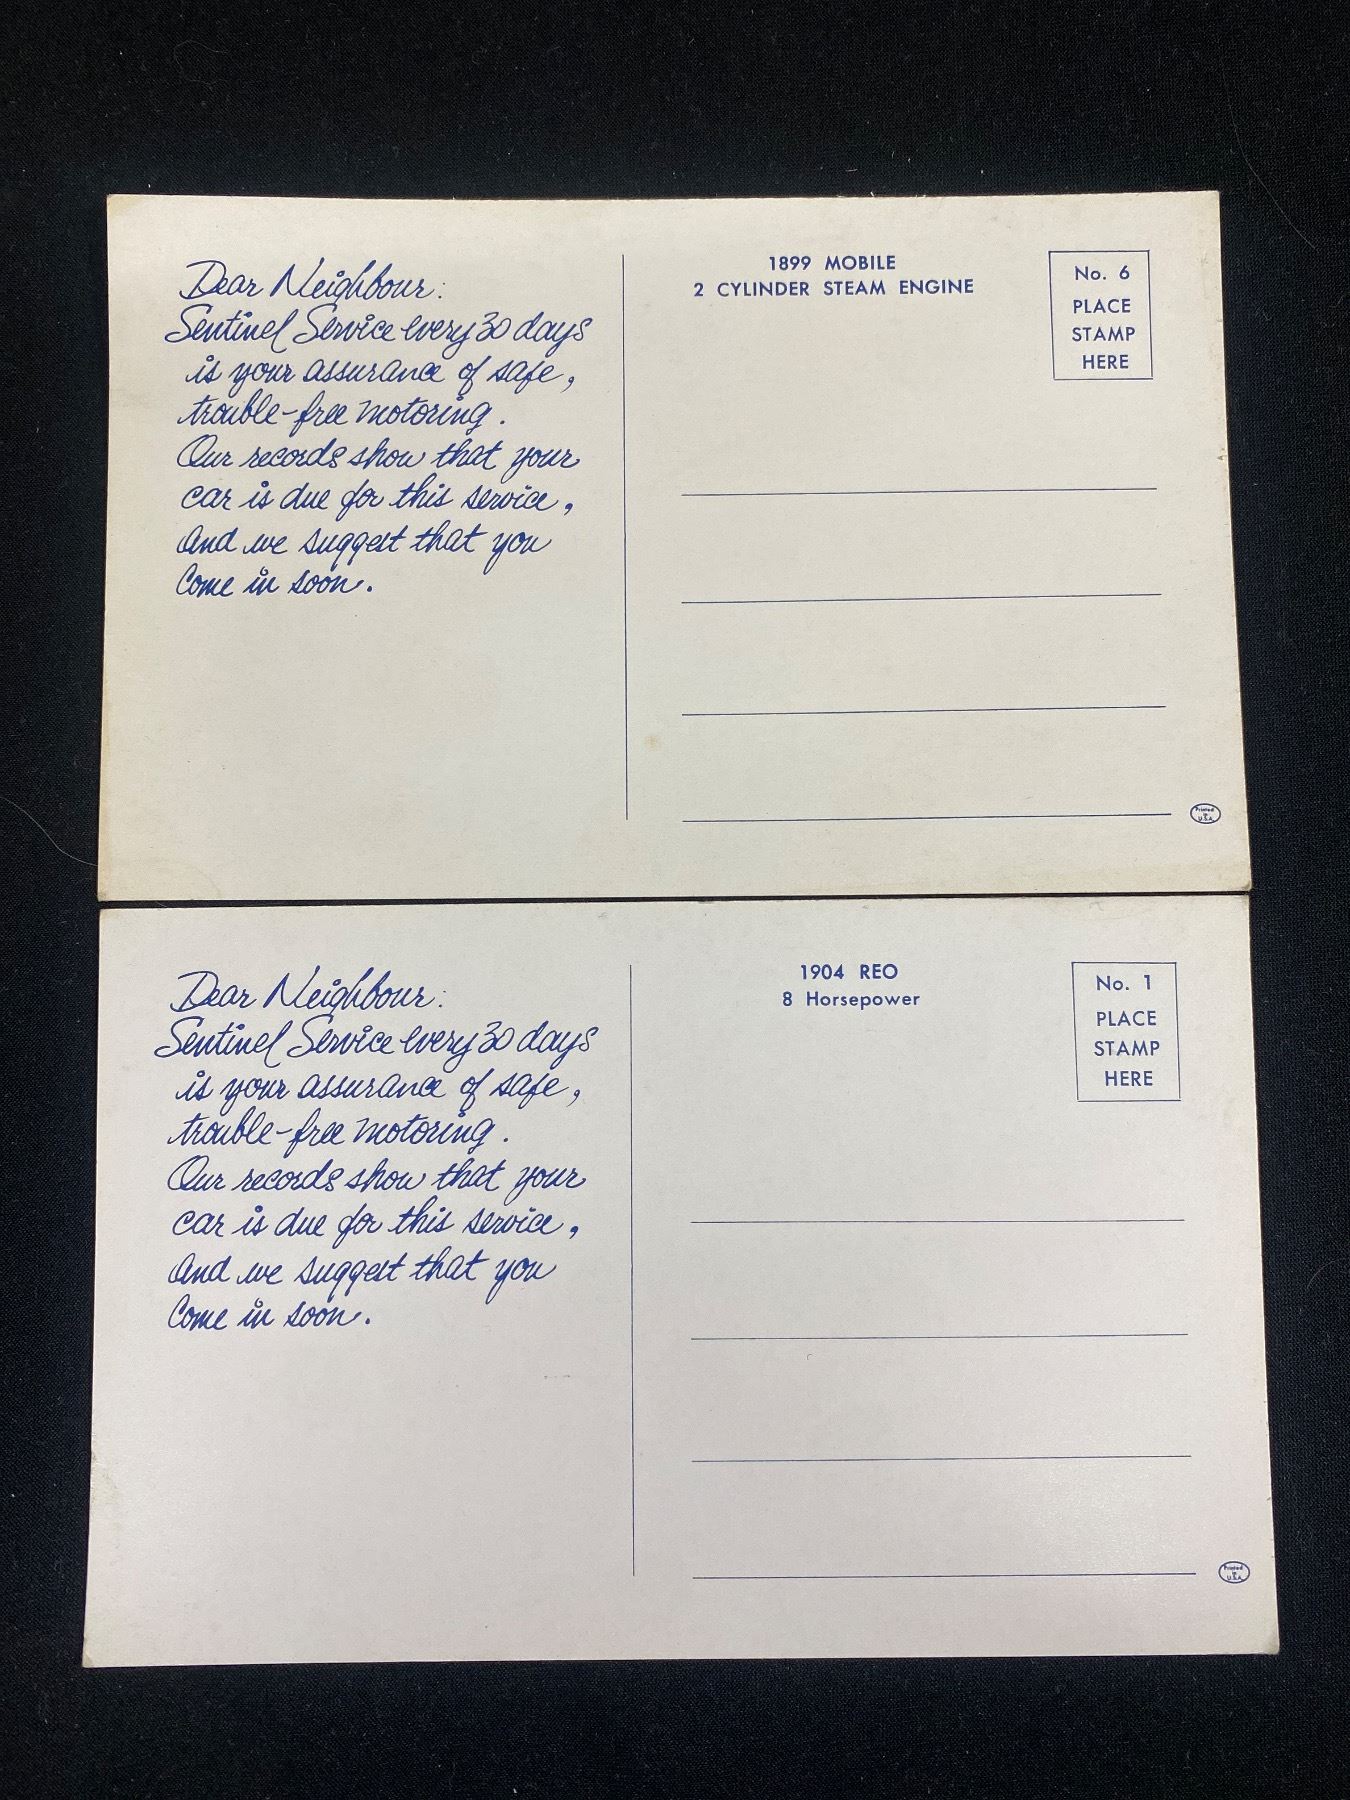 Dear Neighbour:
Sentinel Service every 30 days
is your assurance of safe,
trouble-free motoring.
Our records show that your
car is due for this service,
And we suggest that you
Come in soon.
1899 MOBILE
2 CYLINDER STEAM ENGINE
No. 6
PLACE
STAMP
HERE
Printed
in
U.S.A.
Dear Neighbour:
Sentinel Service every 30 days
is your assurance of safe,
trouble-free motoring.
Our records show that your
car is due for this service,
And we suggest that you
Come in soon.
1904 REO
8 Horsepower
No. 1
PLACE
STAMP
HERE
Printed
in
U.S.A.